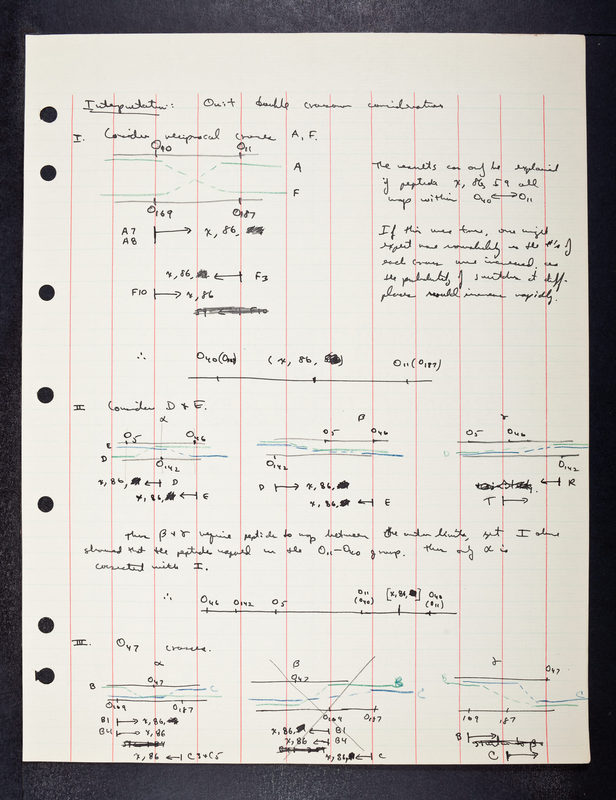 Interpretation: Omit double crossover considerations
I. Consider reciprocal crosses A, F.
O40 O11
A
F
O169 O187
A7
A8
x, 86,
x, 86, F3
F10 x, 86
The results can only be explained
if peptide x, 86, 59 all
map within O40 O11
If this was true, one might
expect more variability in the #'s of
each cross
the probability of switches at diff
places would increase rapidly.
∴ O40 ( x, 86, ) O11 (O187)
II. Consider D + E.
α β γ
O5 O46 O5 O46 O5 O46
E
D D
O142 O142 O142
x, 86, D D x, 86, R
x, 86, E x, 86, E T
Then β + γ require peptide to map between the outer limits, yet I alone
showed that the peptide mapped in the O11-O40 group. Then only α is
consistent with I.
∴ O46 O142 O5 O11 (O40) [x, 86, ] O40 (O11)
III. O47 crosses.
α β γ
O47 O47 O47
B C B C C
O169 O187 O169 O187 169 187
B1 x, 86, x, 86, B1 B
B4 x, 86 x, 86 B4
x, 86 C3+C5 x, 86, C C